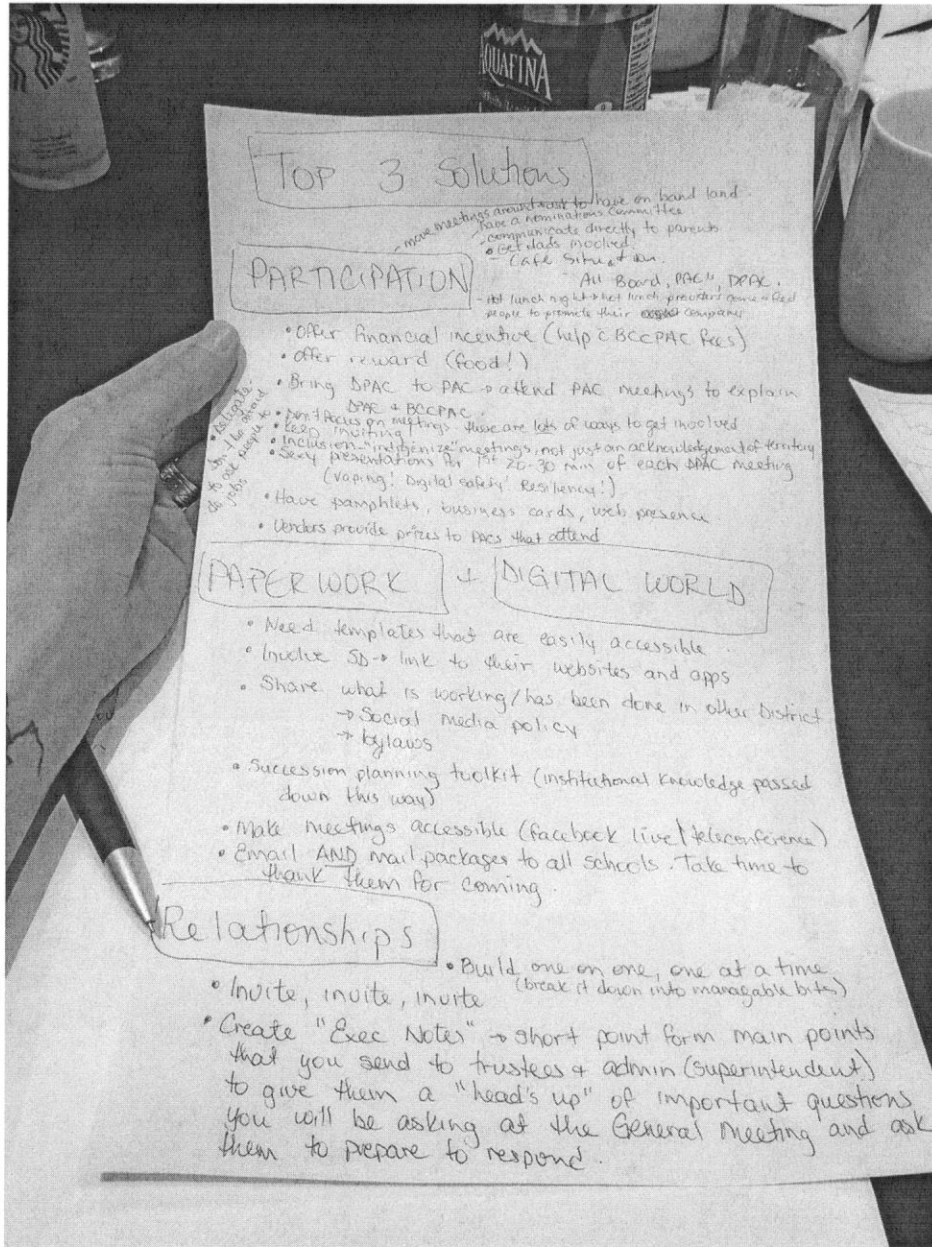 AQUAFINA
TOP 3 Solutions
- move meetings around + ask to have on band land.
- have a nominations committee
- communicate directly to parents
• Get dads involved.
- Café Situation
All Board, PAC's, DPAC.
- Hot lunch night + hot lunch providers come + feed
people to promote their companies
PARTICIPATION
• Offer financial incentive (help c BCCPAC fees)
• Offer reward (food!)
• Bring DPAC to PAC → attend PAC meetings to explain
DPAC + BCCPAC.
• Don't focus on meetings - there are lots of ways to get involved
• Keep inviting!
• Inclusion - "indigenize" meetings, not just an acknowledgement of territory
• Sexy presentations for 1st 20-30 min of each DPAC meeting
(vaping! Digital safety! Resiliency!)
• Have pamphlets, business cards, web presence
• Vendors provide prizes to PACs that attend
don't be afraid
to ask people to
do jobs
PAPERWORK + DIGITAL WORLD
• Need templates that are easily accessible
• Involve SD → link to their websites and apps
• Share what is working/has been done in other District
→ Social media policy
→ bylaws
• Succession planning toolkit (institutional knowledge passed
down this way)
• Make meetings accessible (facebook live/teleconference)
• Email AND mail packages to all schools. Take time to
thank them for coming.
Relationships
• Build one on one, one at a time
(break it down into managable bites)
• Invite, invite, invite
• Create "Exec Notes" → short point form main points
that you send to trustees + admin (superintendent)
to give them a "head's up" of important questions
you will be asking at the General Meeting and ask
them to prepare to respond.